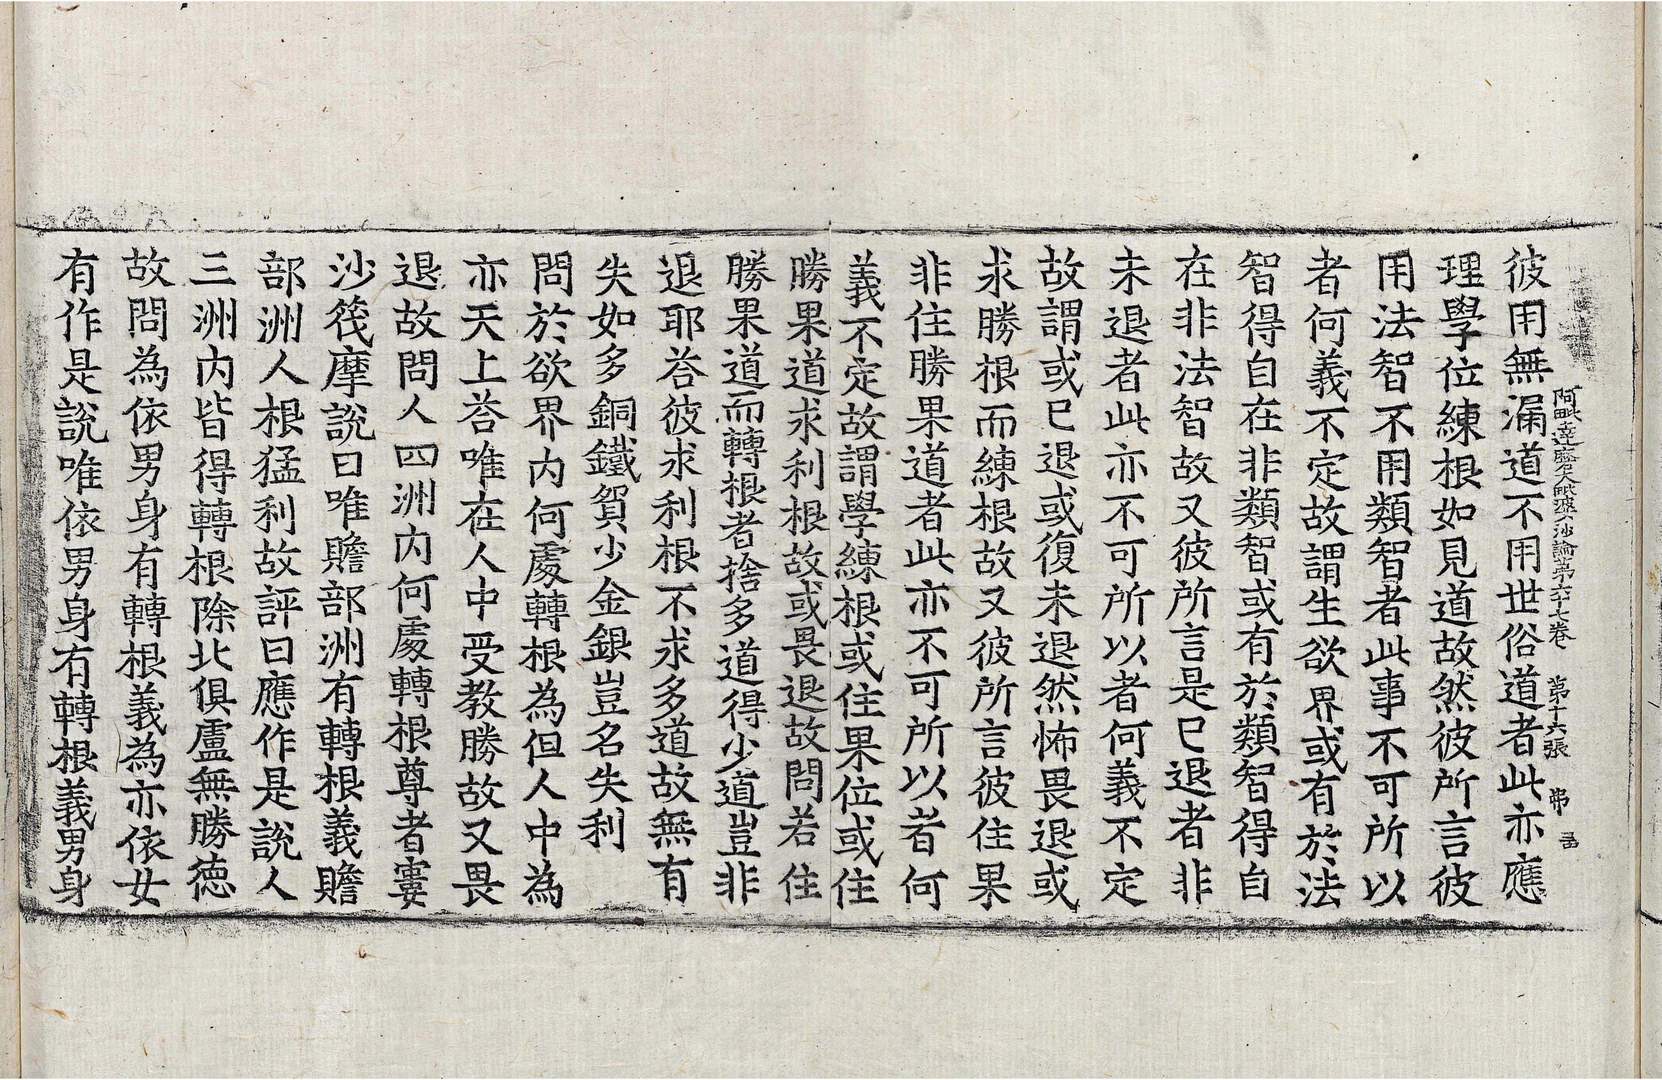 阿毗達磨大毗婆沙論第六十七卷 第十六張 弗
彼用無漏道不用世俗道者此亦應
理學位練根如見道故然彼所言彼
用法智不用類智者此事不可所以
者何義不定故謂生欲界或有於法
智得自在非類智或有於類智得自
在非法智故又彼所言是已退者非
未退者此亦不可所以者何義不定
故謂或已退或復未退然怖畏退或
求勝根而練根故又彼所言彼住果
非住勝果道者此亦不可所以者何
義不定故謂學練根或住果位或住
勝果道求利根故或畏退故問若住
勝果道而轉根者捨多道得少道豈非
退耶荅彼求利根不求多道故無有
失如多銅鐵賀少金銀豈名失利
問於欲界內何處轉根為但人中為
亦天上荅唯在人中受教勝故又畏
退故問人四洲內何處轉根尊者寠
沙筏摩說曰唯贍部洲有轉根義贍
部洲人根猛利故評曰應作是說人
三洲內皆得轉根除北俱盧無勝德
故問為依男身有轉根義為亦依女
有作是說唯依男身有轉根義男身